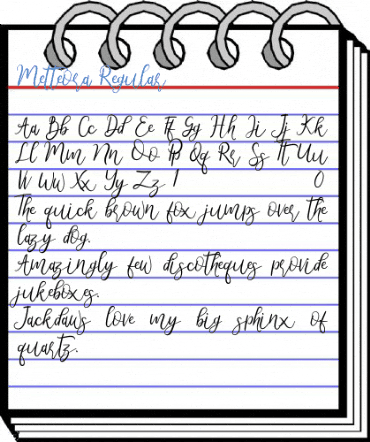 Metteora Regular
Aa Bb Cc Dd Ee Ff Gg Hh Ii Jj Kk
Ll Mm Nn Oo Pp Qq Rr Ss Tt Uu
Vv Ww Xx Yy Zz 1 0
The quick brown fox jumps over the
lazy dog.
Amazingly few discotheques provide
jukeboxes.
Jackdaws love my big sphinx of
quartz.